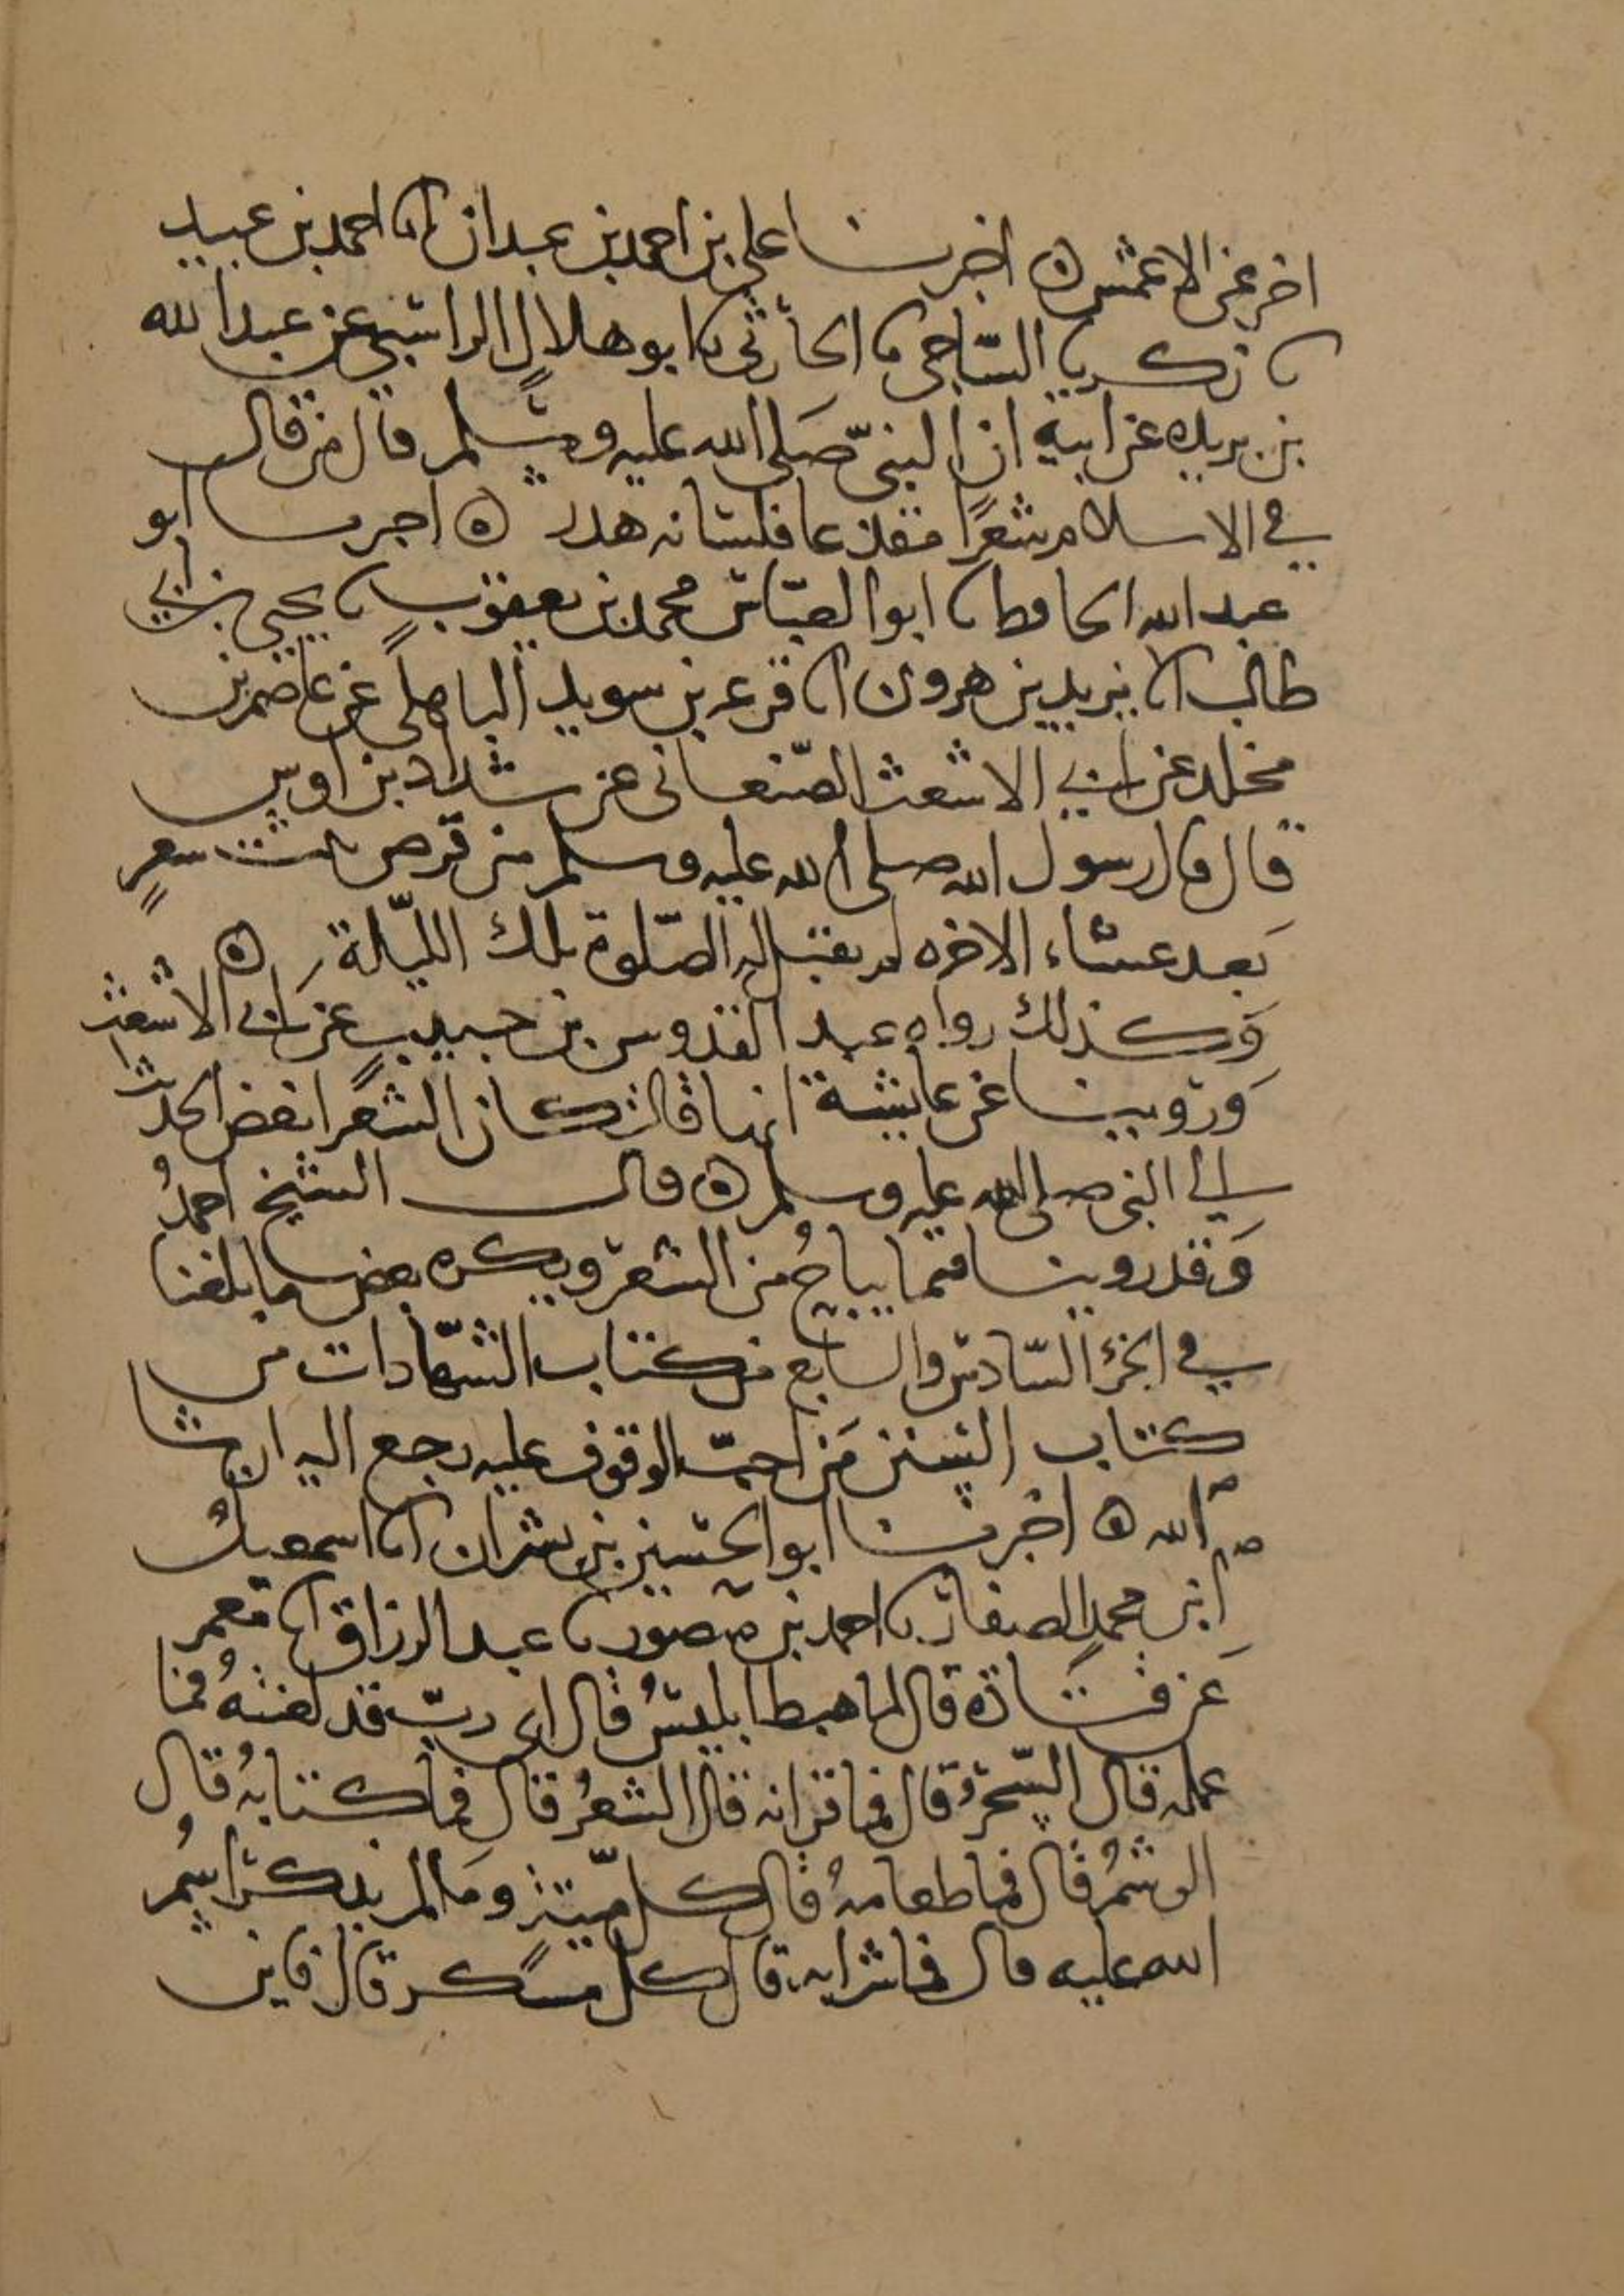 اخر عن الاعمش ه اخبرنا علي بن احمد بن عبدان انا احمد بن عبيد
نا زكريا الساجي نا الحارثي نا ابو هلال الراسبي عن عبد الله
بن بريده عن ابيه ان النبي صلى الله عليه وسلم قال من قال
في الاسلام شعرًا مقذعا فلسانه هدر ه اخبرنا ابو
عبد الله الحافظ نا ابو العباس محمد بن يعقوب نا يحيى بن ابي
طالب انا يزيد بن هرون انا قزعه بن سويد الباهلي عن عاصم بن
مخلد عن ابي الاشعث الصّنعاني عن شداد بن اوس
قال قال رسول الله صلى الله عليه وسلم من قرض بيت شعرٍ
بَعد عشاء الاخره لم يقبل له الصّلوة تلك الليّلة ه
وَكذلك رواه عبد القدوس بن حبيب عن ابي الاشعث
وَروينا عن عايشة انها قالت كان الشعر ابغض الحديث
الي النبي صلى الله عليه وسلم ه قال الشيخ احمدُ
وَقد روينا فيما يباحُ من الشعر ويكره بعض ما بلغنا
في الجزء السّادس والسابع من كتاب الشهادات من
كتاب السنن مَن احبّ الوقوف عليه رجع اليه ان شا
الله ه اخبرنا ابو الحسين بن بشران انا اسمعيل
ابن محمد الصفار نا احمد بن منصور نا عبد الرزاق انا معمر
عَن قتادة قال لما هبط ابليسُ قال اي ربّ قد لعنته فما
عمله قال السّحرُ قال فما قرانه قال الشعرُ قال فما كتابهُ قال
الوشمُ قال فما طعامهُ قال كل ميّتة وما لم يذكر اسمُ
الله عليه قال فما شرابه قال كل مسكر قال فاين